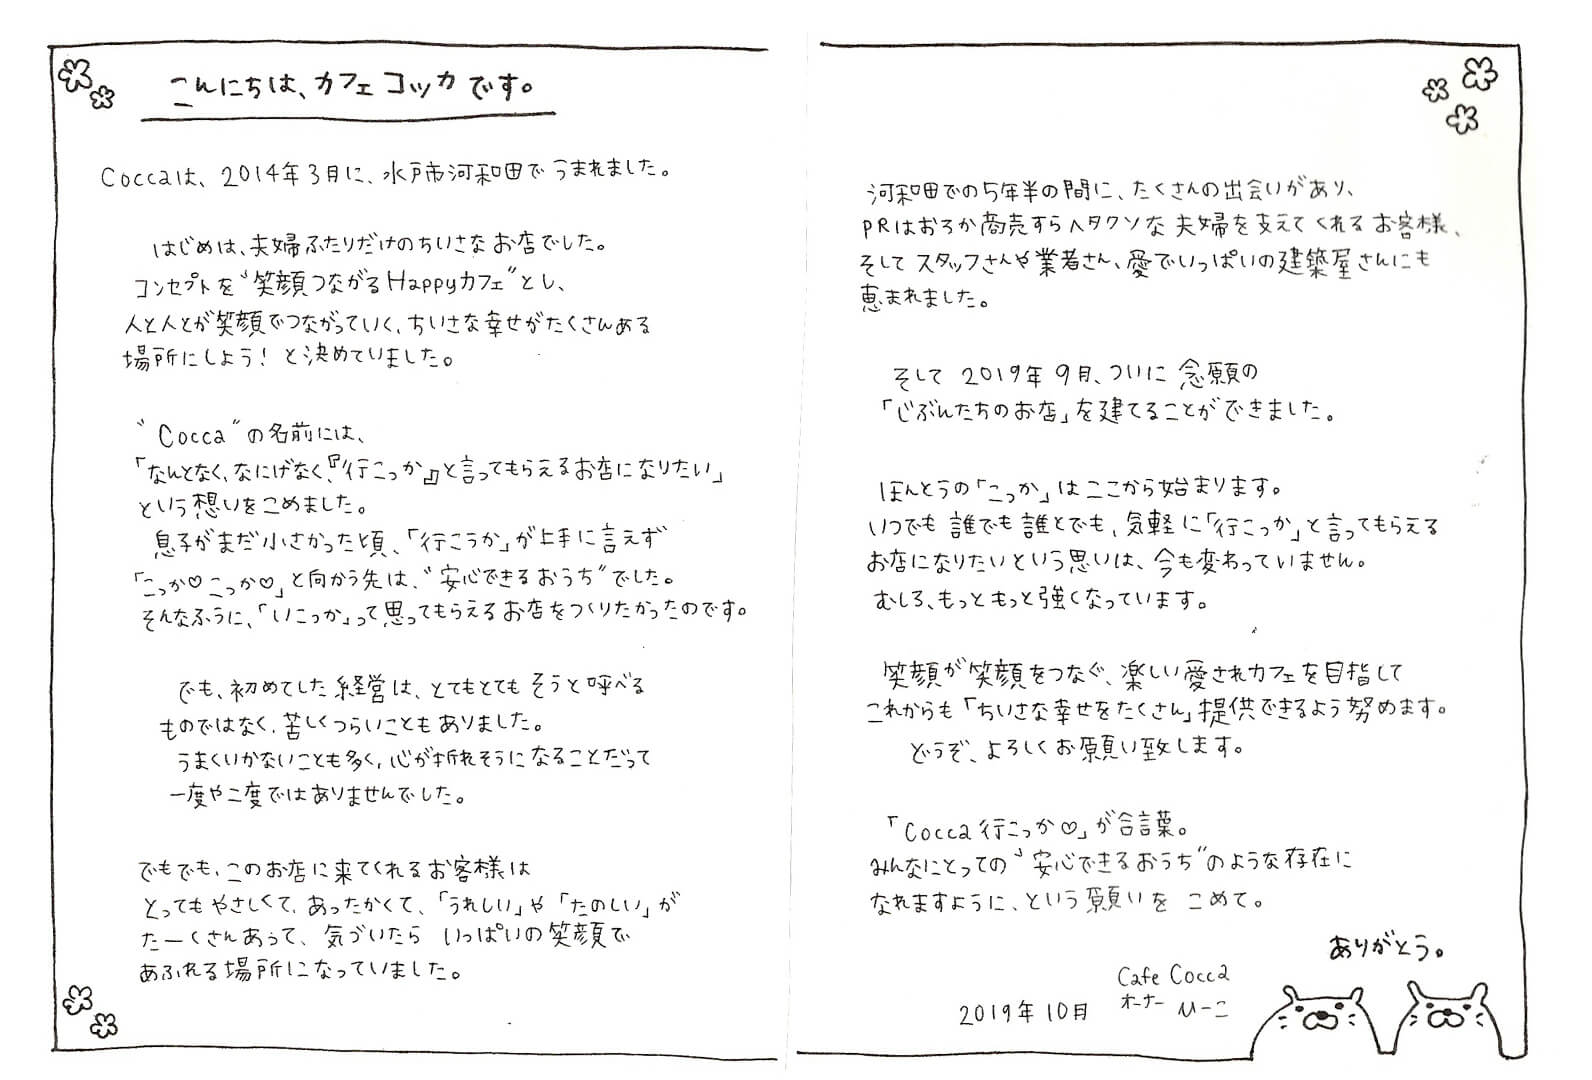 こんにちは、カフェ コッカ です。
Coccaは、2014年3月に、水戸市河和田で うまれました。
はじめは、夫婦ふたりだけのちいさな お店でした。
コンセプトを“笑顔つながるHappyカフェ”とし、
人と人とが笑顔でつながっていく、ちいさな幸せがたくさんある
場所にしよう! と決めていました。
“Cocca”の名前には、
「なんとなく、なにげなく、『行こっか』と言ってもらえるお店になりたい」
という想いをこめました。
息子がまだ小さかった頃、「行こうか」が上手に言えず
「こっか♡こっか♡」と向かう先は、“安心できるおうち”でした。
そんなふうに、「いこっか」って思ってもらえるお店をつくりたかったのです。
でも、初めてした経営は、とてもとても そうと呼べる
ものではなく、苦しくつらいことも ありました。
うまくいかないことも多く、心が折れそうになることだって
一度や二度ではありませんでした。
でもでも、このお店に来てくれるお客様は
とってもやさしくて、あったかくて、「うれしい」や「たのしい」が
たーくさんあって、気づいたら いっぱいの笑顔で
あふれる場所になっていました。
河和田での5年半の間に、たくさんの出会いがあり、
PRはおろか商売すらヘタクソな 夫婦を支えてくれる お客様、
そして スタッフさんや業者さん、愛でいっぱいの建築屋さんにも
恵まれました。
そして 2019年 9月、ついに 念願の
「じぶんたちのお店」を建てることができました。
ほんとうの「こっか」はここから始まります。
いつでも 誰でも 誰とでも、気軽に「行こっか」と言ってもらえる
お店になりたいという思いは、今も変わっていません。
むしろ、もっと もっと強くなっています。
笑顔が笑顔をつなぐ、楽しい愛されカフェを目指して
これからも「ちいさな幸せをたくさん」提供できるよう努めます。
どうぞ、よろしくお願い致します。
「Cocca 行こっか♡」が合言葉。
みんなにとっての“安心できるおうち”のような存在に
なれますように、という願いを こめて。
ありがとう。
2019年10月 Cafe Cocca
オーナー ひーこ